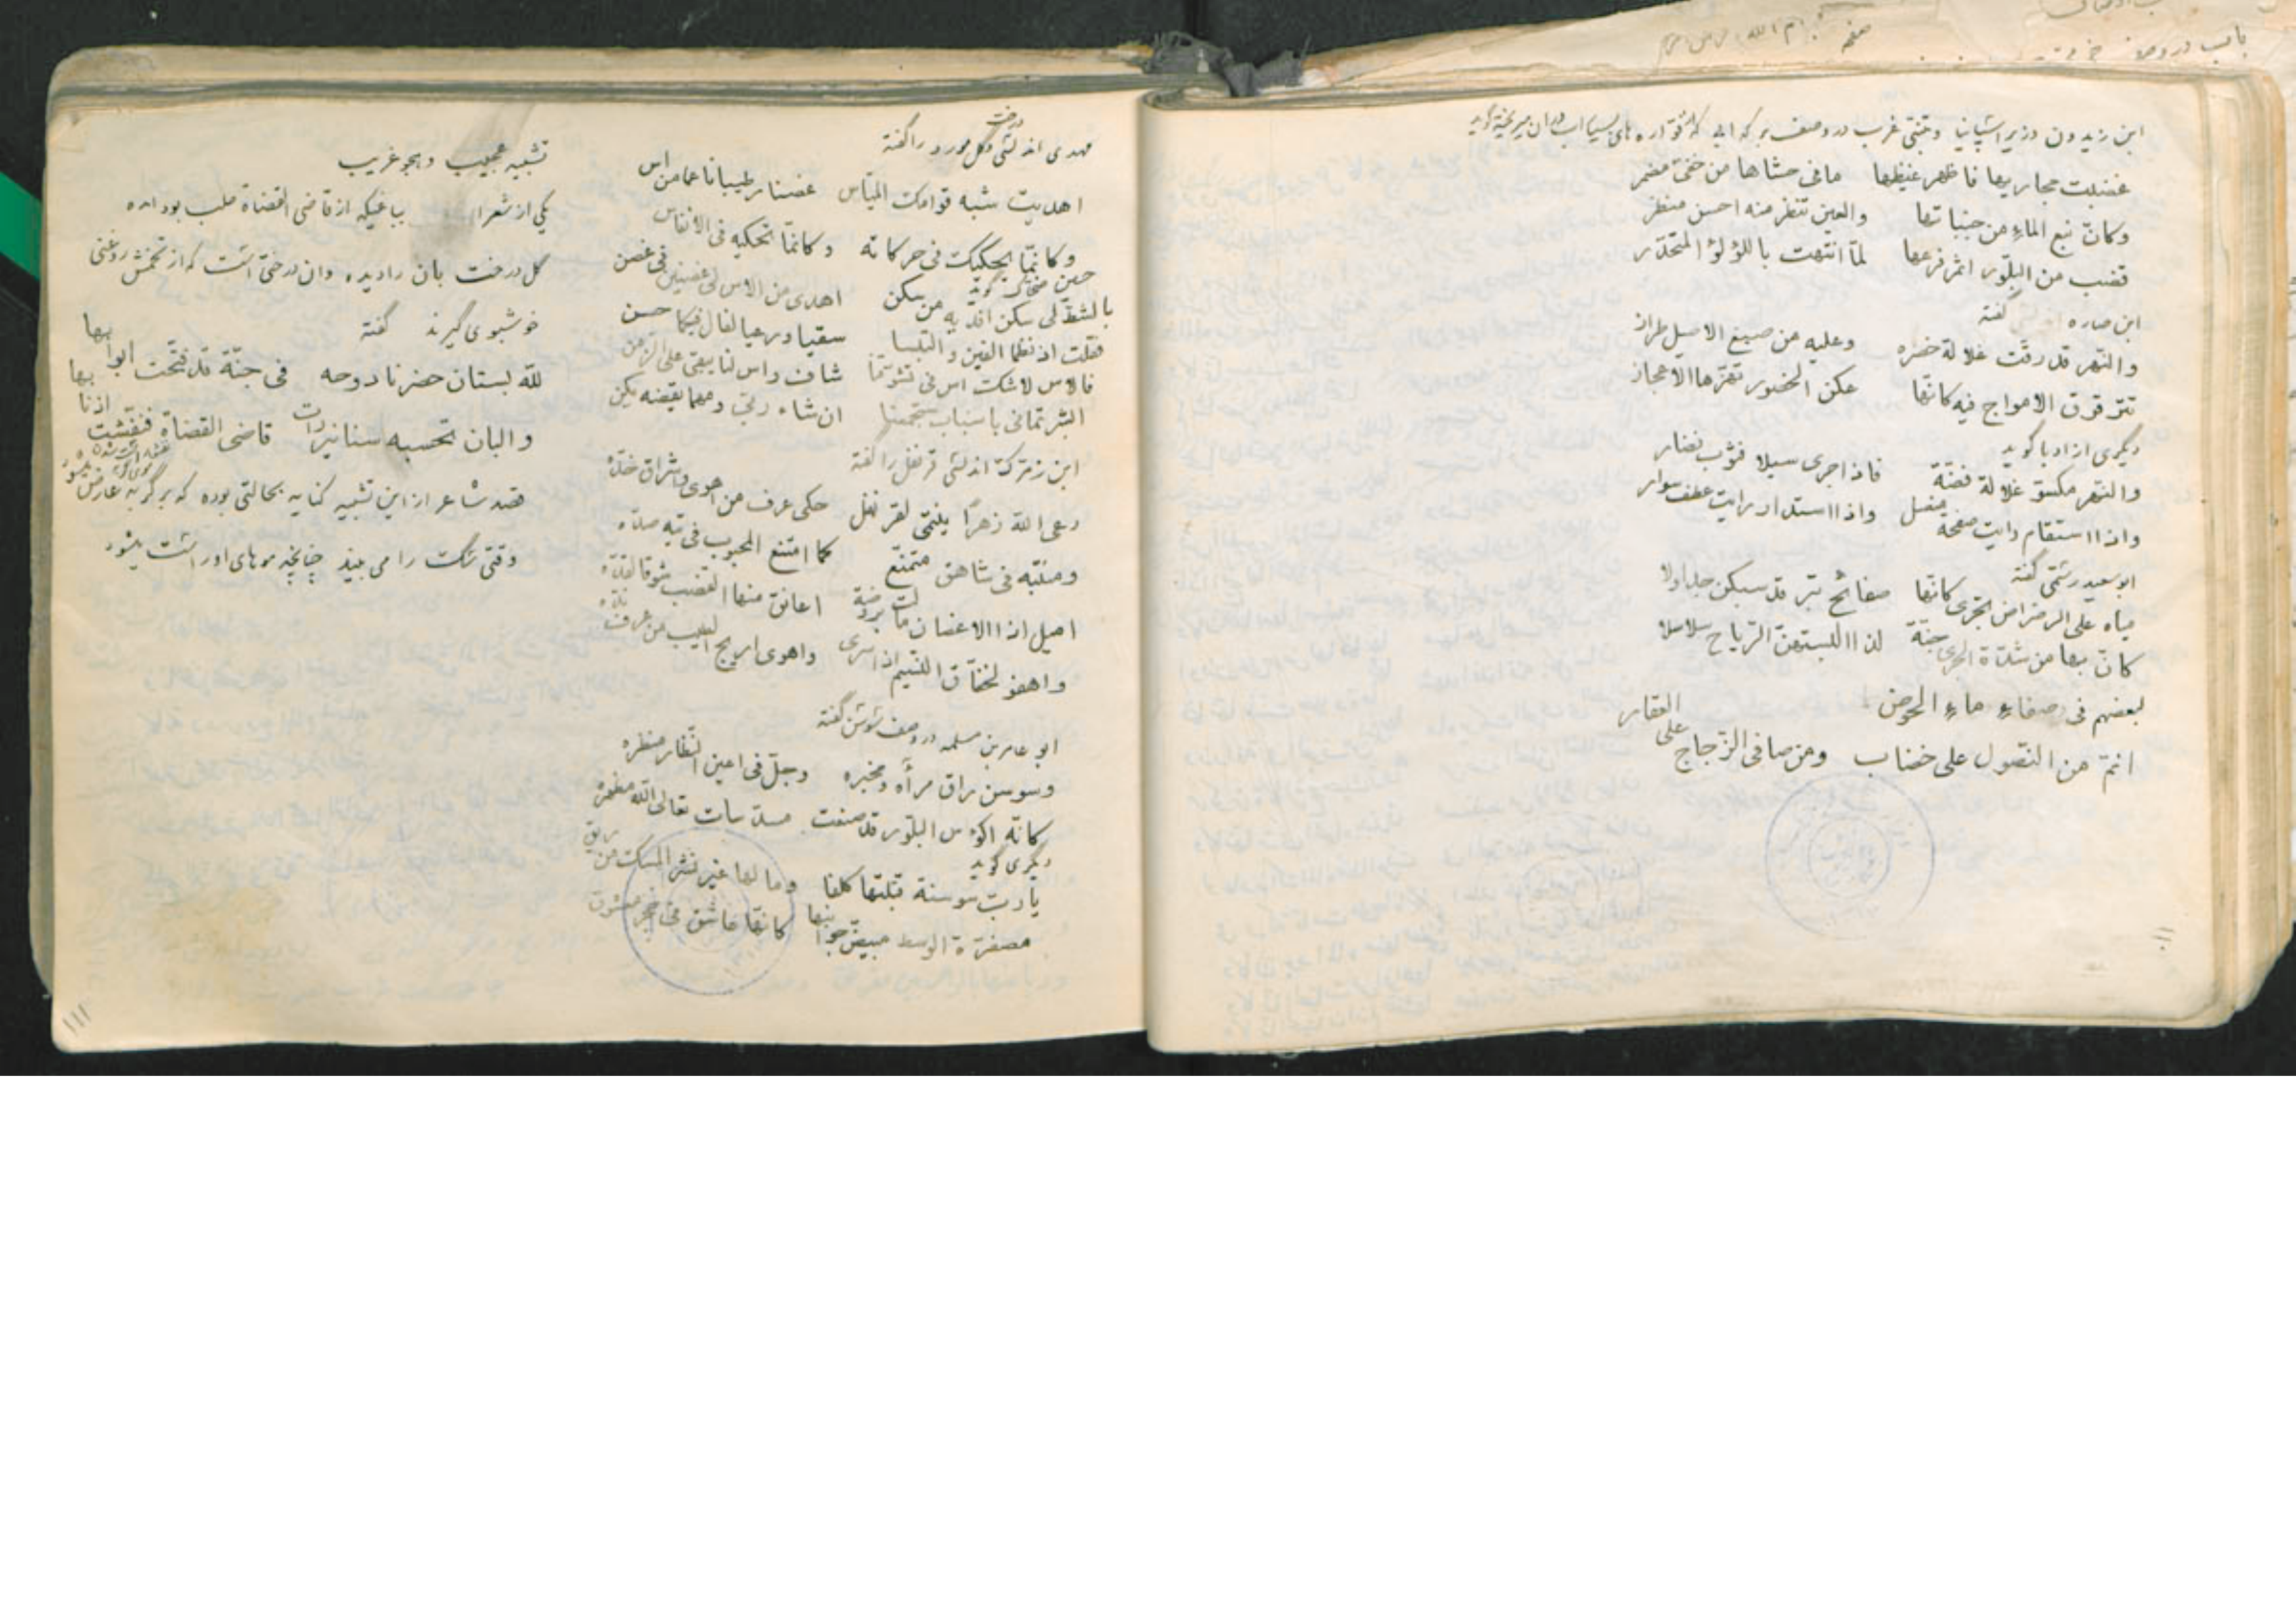 باب در وصف
صفحه
ابن زیدون وزیر اسپانیا و متنبّی غرب در وصف برکه ابی که فوّاره های بسیار اب در ان میریخته گوید
غضبت مجاریها فاظهر غیظها ما فی حشاها من خفیّ مضمر
وکانّ نبع الماءِ من جنباتها والعین تنظر منه احسن منظر
قضب من البلّور اثمر فرعها لمّا انتهت باللؤلؤ المتحدّر
ابن صاره گفته
والنّهر قد رقّت غلالة خضره وعلیه من صبغ الاصیل طراز
تترقرق الامواج فیه کانّها عکن الخصور تهزّها الاعجاز
دیگری از ادبا گوید
والنّهر مکسوّ غلالة فضّة فاذا جری سیلا فثوب نضار
واذا استقام رایت صفحة منصل واذا استدار رایت عطف سوار
ابو سعید رستمی گفته
میاه علی الرضراض تجری کانّها صفائح تبر قد سبکن جداولا
کانّ بها من شدّة الجری جنّة لذا البستهنّ الرّیاح سلاسلا
لبعضهم فی صفاءِ ماءِ الحوض
انمّ من النّصول علی خضاب ومن صافی الزّجاج علی العقار
۱۱۰
مهدی اندلسی گل درخت مورد را گفته
اهدیت شبه قوامک المیّاس غصنا رطیبا ناعما من اس
وکانّما یحکیک فی حرکاته وکانّما تحکیه فی الانفاس
گوید
بالشطّ لی سکن افدیه من سکن اهدی من الاس لی غصنین فی غصن
فقلت اذ نظما الفین والتبسا سقیا ورعیا لفال فیکما حسن
فالاس لاشک اس فی تشوّقنا شاف واس لنا یبقی علی الزمن
ابشرتمانی باسباب ستجمعنا ان شاء ربّی ومهما یقضه یکن
ابن زمرک اندلسی قرنفل را گفته
رعی الله زهرًا ینتمی لقرنفل حکی عرف من اهوی واشراق خدّه
ومنبته فی شاهق متمنّع کما امتنع المحبوب فی تیه صدّه
امیل اذا الاغصان مالت بروضة اعانق منها القضب شوقا لقدّه
واهفو لخفّاق النسیم اذا سری واهوی اریج الطیب من عرف ندّه
ابو عامر بن مسلمه در وصف سوسن گفته
وسوسن راق مرآه ومخبره وجلّ فی اعین النّظار منظره
کانّه اکؤس البلّور قد صنفت مسدّسات تعالی الله مظهره
دیگری گوید
یا ربّ سوسنة قبّلتها کلفا وما لها غیر نشر المسک من ریق
مصفرّة الوسط مبیضّ جوانبها کانّها عاشق فی حجر معشوق
تشبیه عجیب و هجو غریب
یکی از شعرا بباغیکه از قاضی القضاة حلب بود امده
گل درخت بان را دیده وان درختی است که از تخمش روغنی
خوشبوی گیرند گفته
للّه بستان حضرنا دوحه فی جنّة قد فتّحت ابوابها
والبان تحسبه سنانیرا رات قاضی القضاة فنفّشت اذنابها
قصد شاعر از این تشبیه کنایه بحالتی بوده که بر گربه عارض میشود
وقتی سگ را می بیند چنانچه موهای او راست میشود
۱۱۱